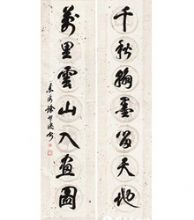 千秋翰墨留天地
萬里雲山入畫圖